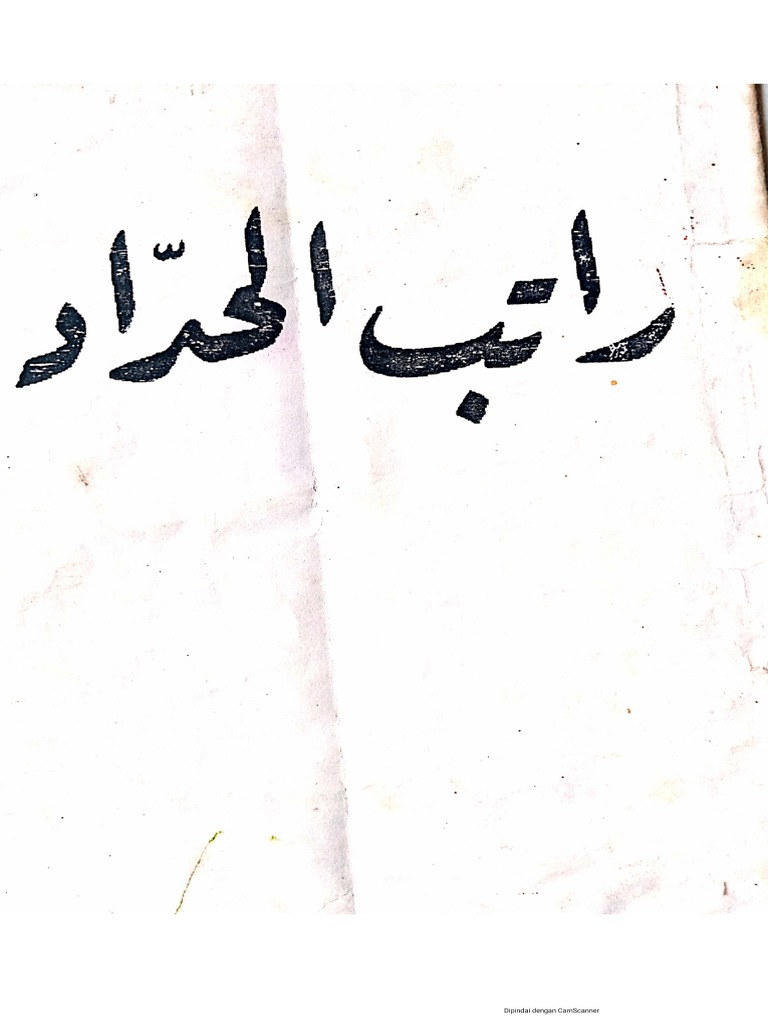 راتب الحدّاد
Dipindai dengan CamScanner